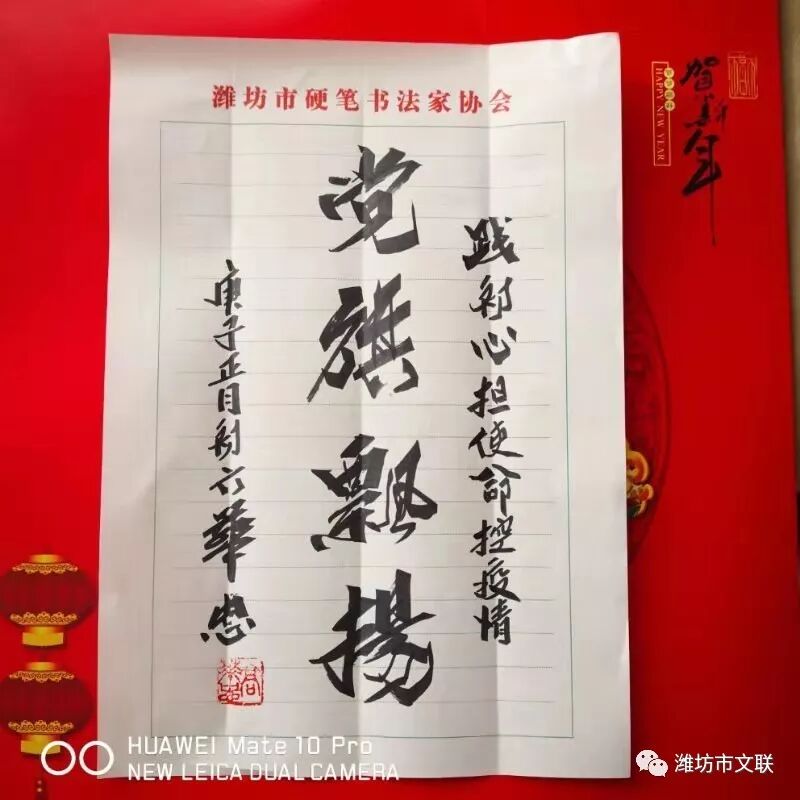 潍坊市硬笔书法家协会
践初心担使命控疫情
党旗飘揚
庚子正月初六華忠
賀新年
HAPPY NEW YEAR
HUAWEI Mate 10 Pro
NEW LEICA DUAL CAMERA
潍坊市文联